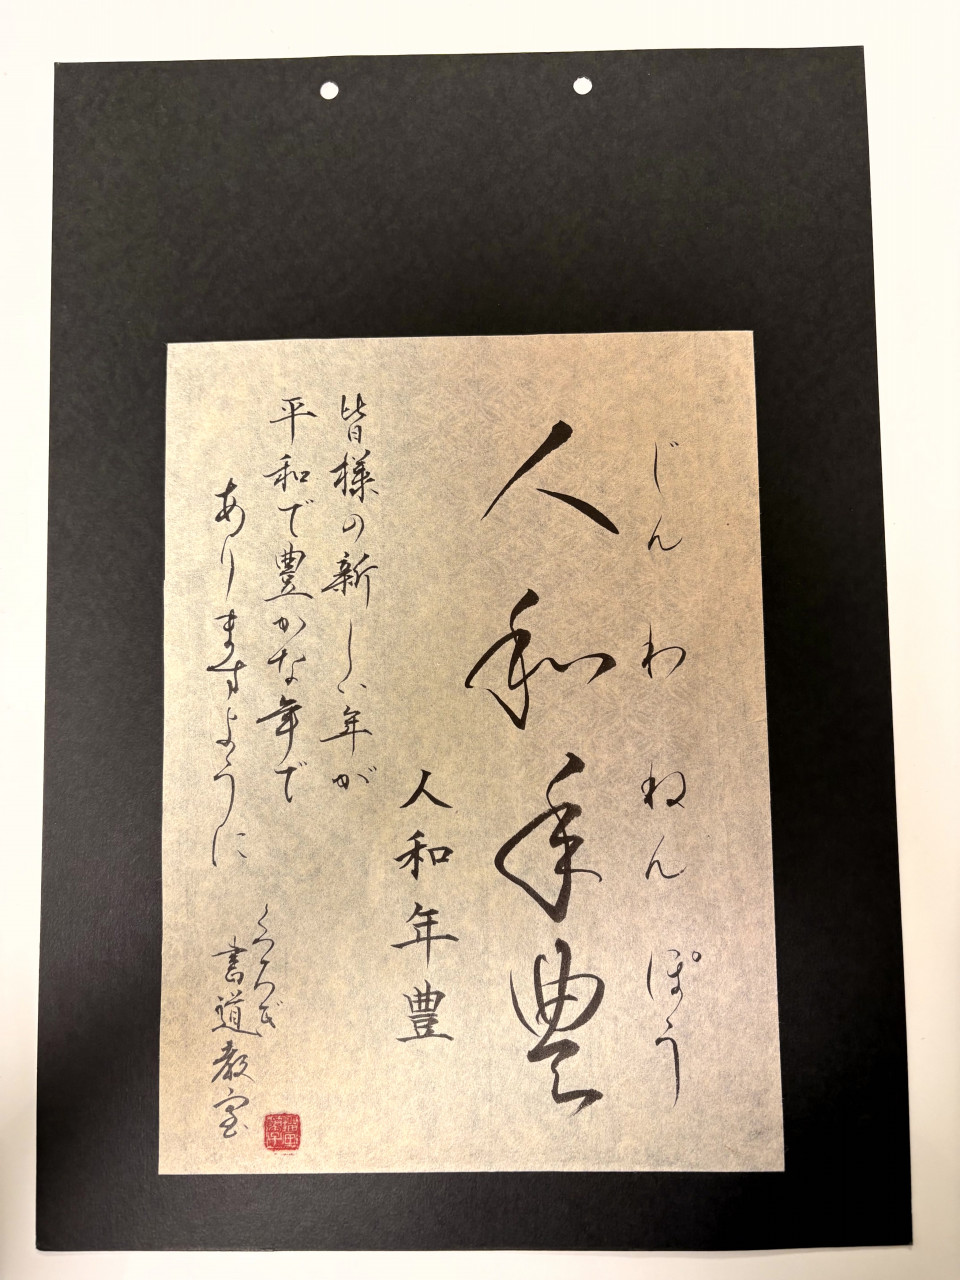 じんわ ねんぽう
人和年豊
人和年豊
皆様の新しい年が
平和で豊かな年で
ありますように
くつろぎ
書道教室